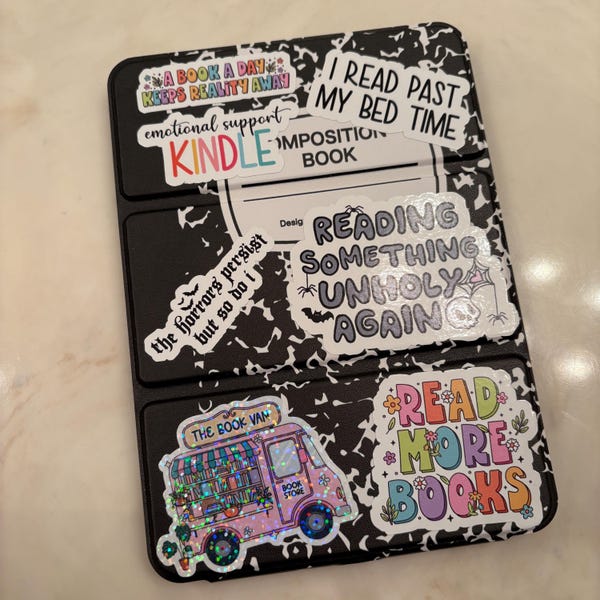 A BOOK A DAY
KEEPS REALITY AWAY
I READ PAST
MY BED TIME
emotional support
KINDLE
OMPOSITION
BOOK
Desig
READING
SOMETHING
UNHOLY
AGAIN
the horrors persist
but so do i
THE BOOK VAN
BOOK
STORE
READ
MORE
BOOKS